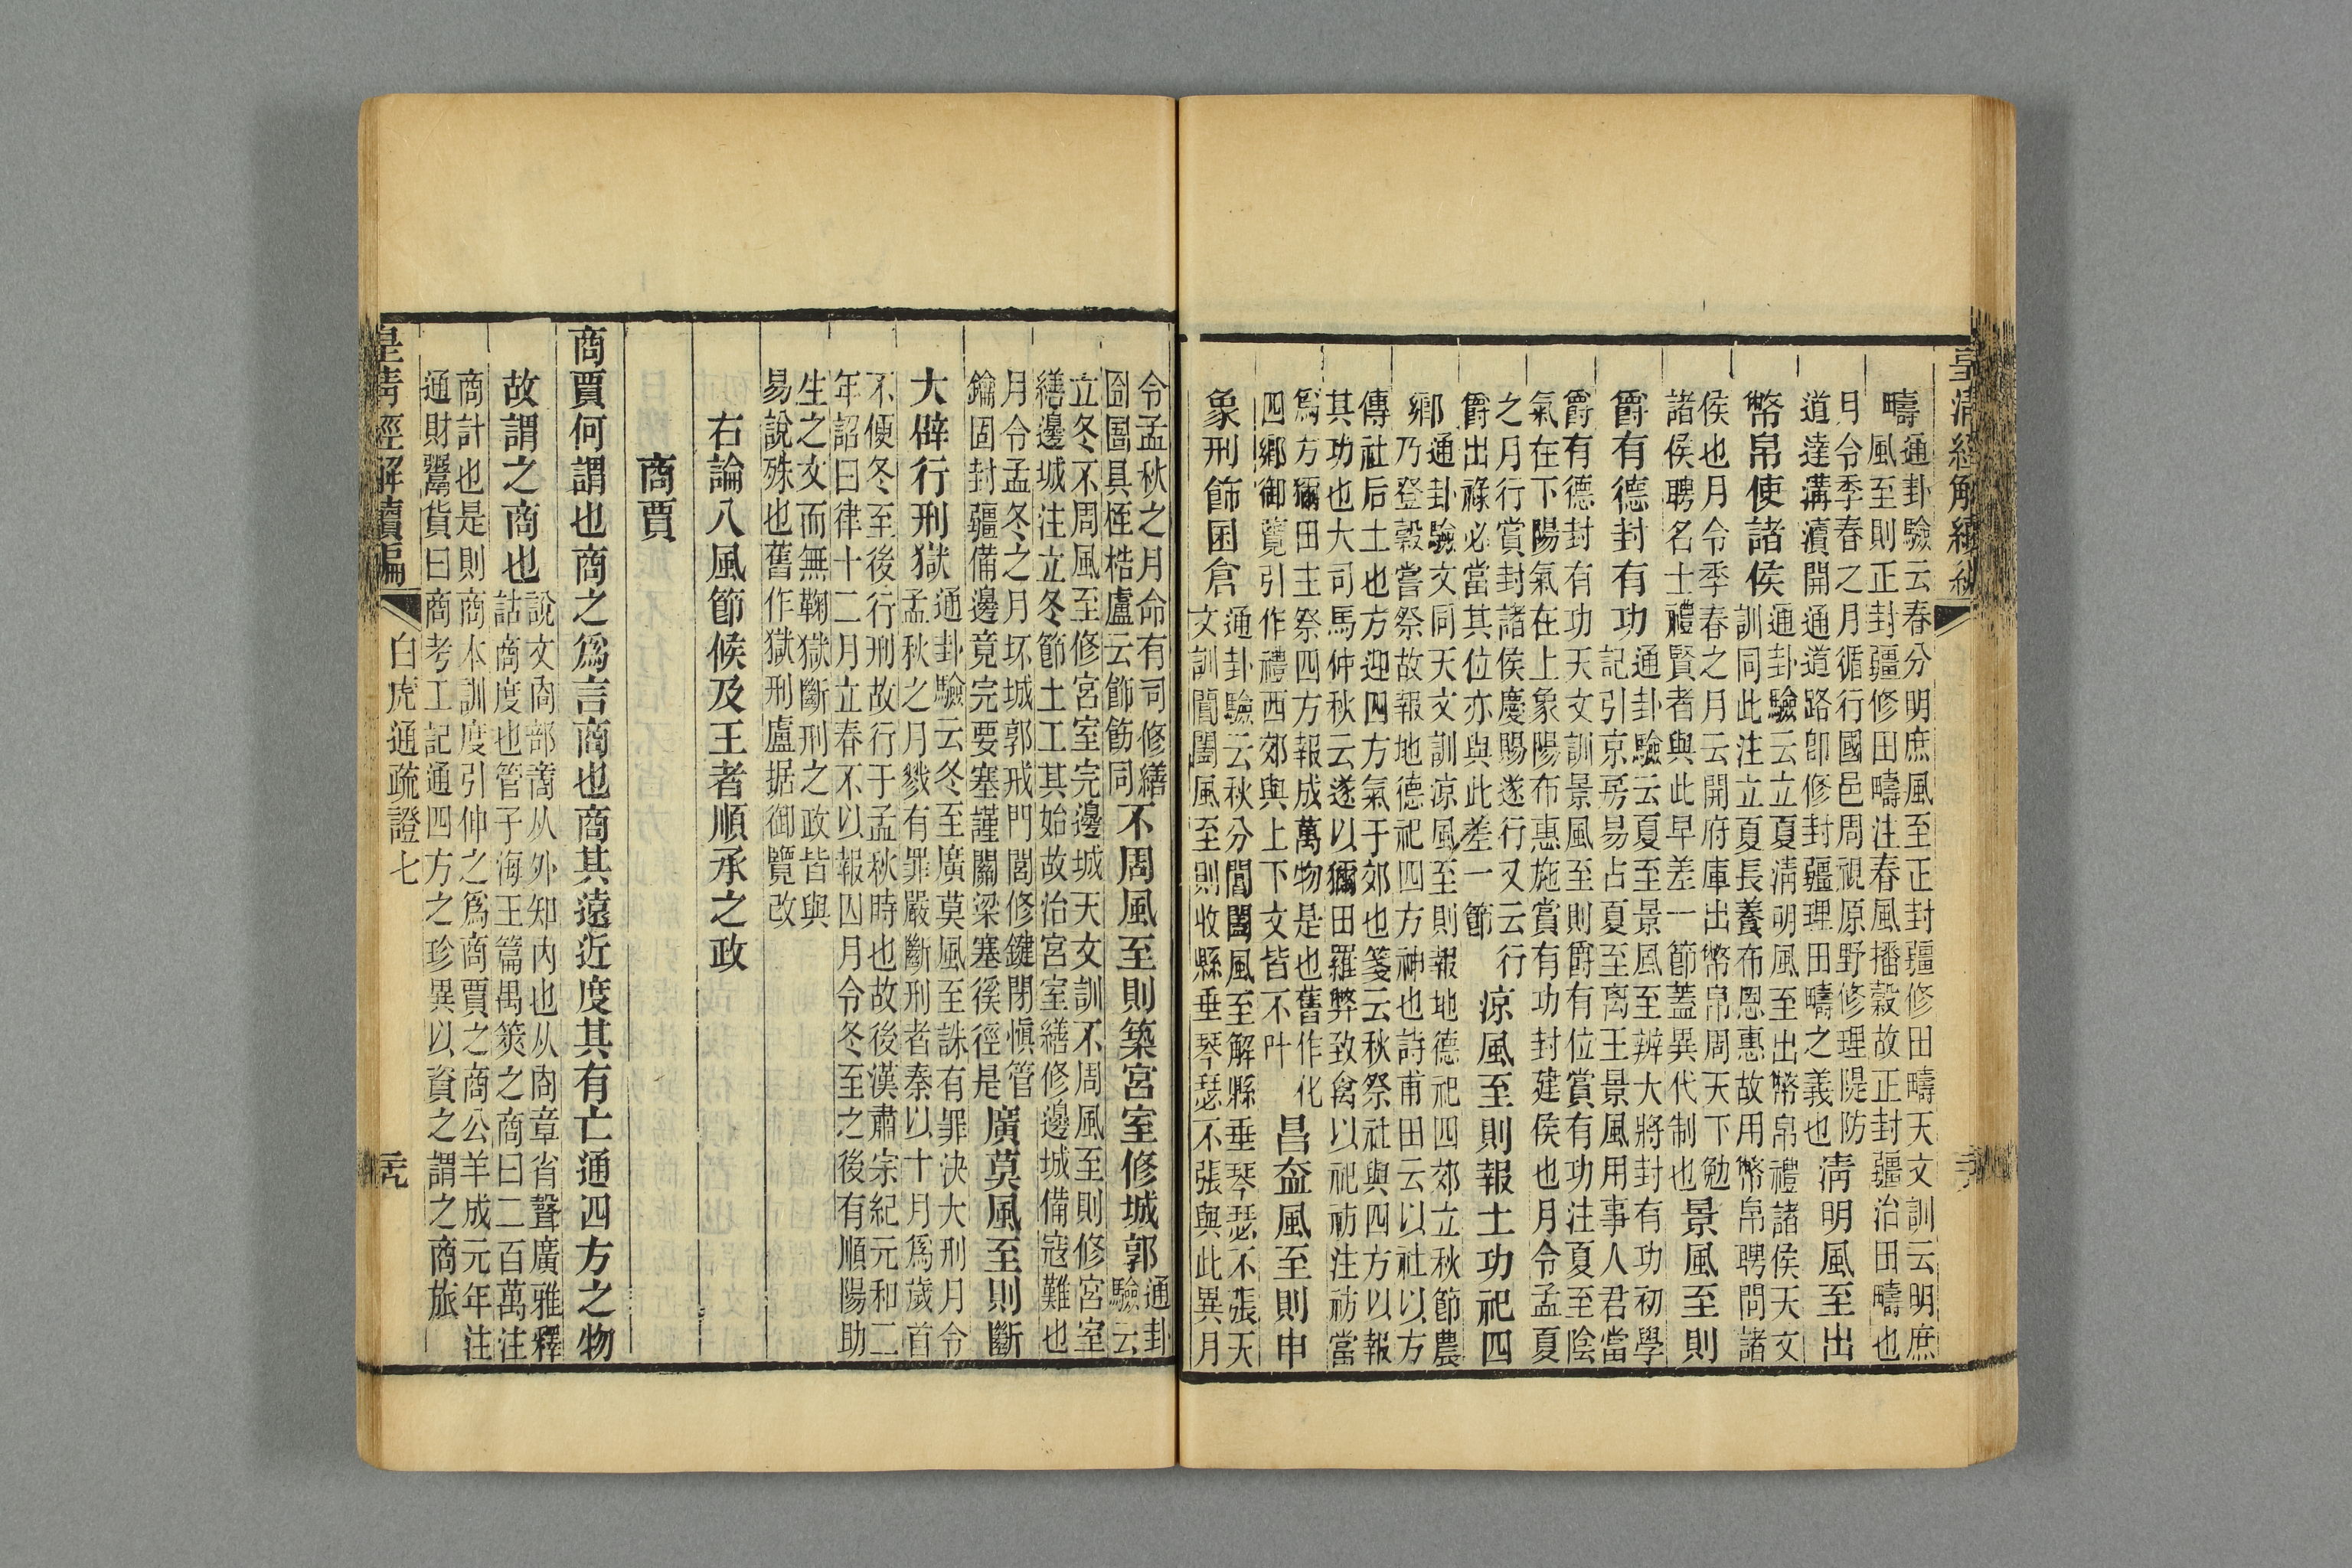 皇清經解續編
疇通卦驗云春分明庶風至正封疆修田疇天文訓云明庶
風至則正封疆修田疇注春風播穀故正封疆治田疇也
月令季春之月循行國邑周視原野修理隄防
道達溝瀆開通道路卽修封疆理田疇之義也淸明風至出
幣帛使諸侯通卦驗云立夏淸明風至出幣帛禮諸侯天文
訓同此注立夏長養布恩惠故用幣帛聘問諸
侯也月令季春之月云開府庫出幣帛周天下勉
諸侯聘名士禮賢者與此早差一節蓋異代制也景風至則
爵有德封有功通卦驗云夏至景風至辨大將封有功初學
記引京房易占夏至離王景風用事人君當
爵有德封有功天文訓景風至則爵有位賞有功注夏至陰
氣在下陽氣在上象陽布惠施賞有功封建侯也月令孟夏
之月行賞封諸侯慶賜遂行又云行
爵出祿必當其位亦與此差一節涼風至則報土功祀四
鄉通卦驗文同天文訓涼風至則報地德祀四郊立秋節農
乃登穀嘗祭故報地德祀四方神也詩甫田云以社以方
傳社后土也方迎四方氣于郊也箋云秋祭社與四方以報
其功也大司馬仲秋云遂以獮田羅弊致禽以祀祊注祊當
爲方獮田主祭四方報成萬物是也舊作化
四鄉御覽引作禮西郊與上下文皆不叶昌盍風至則申
象刑飾囷倉通卦驗云秋分閶闔風至解縣垂琴瑟不張天
文訓閶闔風至則收縣垂琴瑟不張與此異月
令孟秋之月命有司修繕
囹圄具桎梏盧云飾飭同不周風至則築宮室修城郭通卦
驗云
立冬不周風至修宮室完邊城天文訓不周風至則修宮室
繕邊城注立冬節土工其始故治宮室繕修邊城備寇難也
月令孟冬之月坏城郭戒門閭修鍵閉愼管
鑰固封疆備邊竟完要塞謹關梁塞徯徑是廣莫風至則斷
大辟行刑獄通卦驗云冬至廣莫風至誅有罪決大刑月令
孟秋之月戮有罪嚴斷刑者秦以十月爲歲首
不便冬至後行刑故行于孟秋時也故後漢肅宗紀元和二
年詔曰律十二月立春不以報囚月令冬至之後有順陽助
生之文而無鞠獄斷刑之政皆與
易說殊也舊作獄刑盧据御覽改
右論八風節候及王者順承之政
商賈
商賈何謂也商之爲言商也商其遠近度其有亡通四方之物
故謂之商也說文㕯部商从外知內也从㕯章省聲廣雅釋
詁商度也管子海王篇禺筴之商曰二百萬注
商計也是則商本訓度引伸之爲商賈之商公羊成元年注
通財鬻貨曰商考工記通四方之珍異以資之謂之商旅
皇淸經解續編
白虎通疏證七